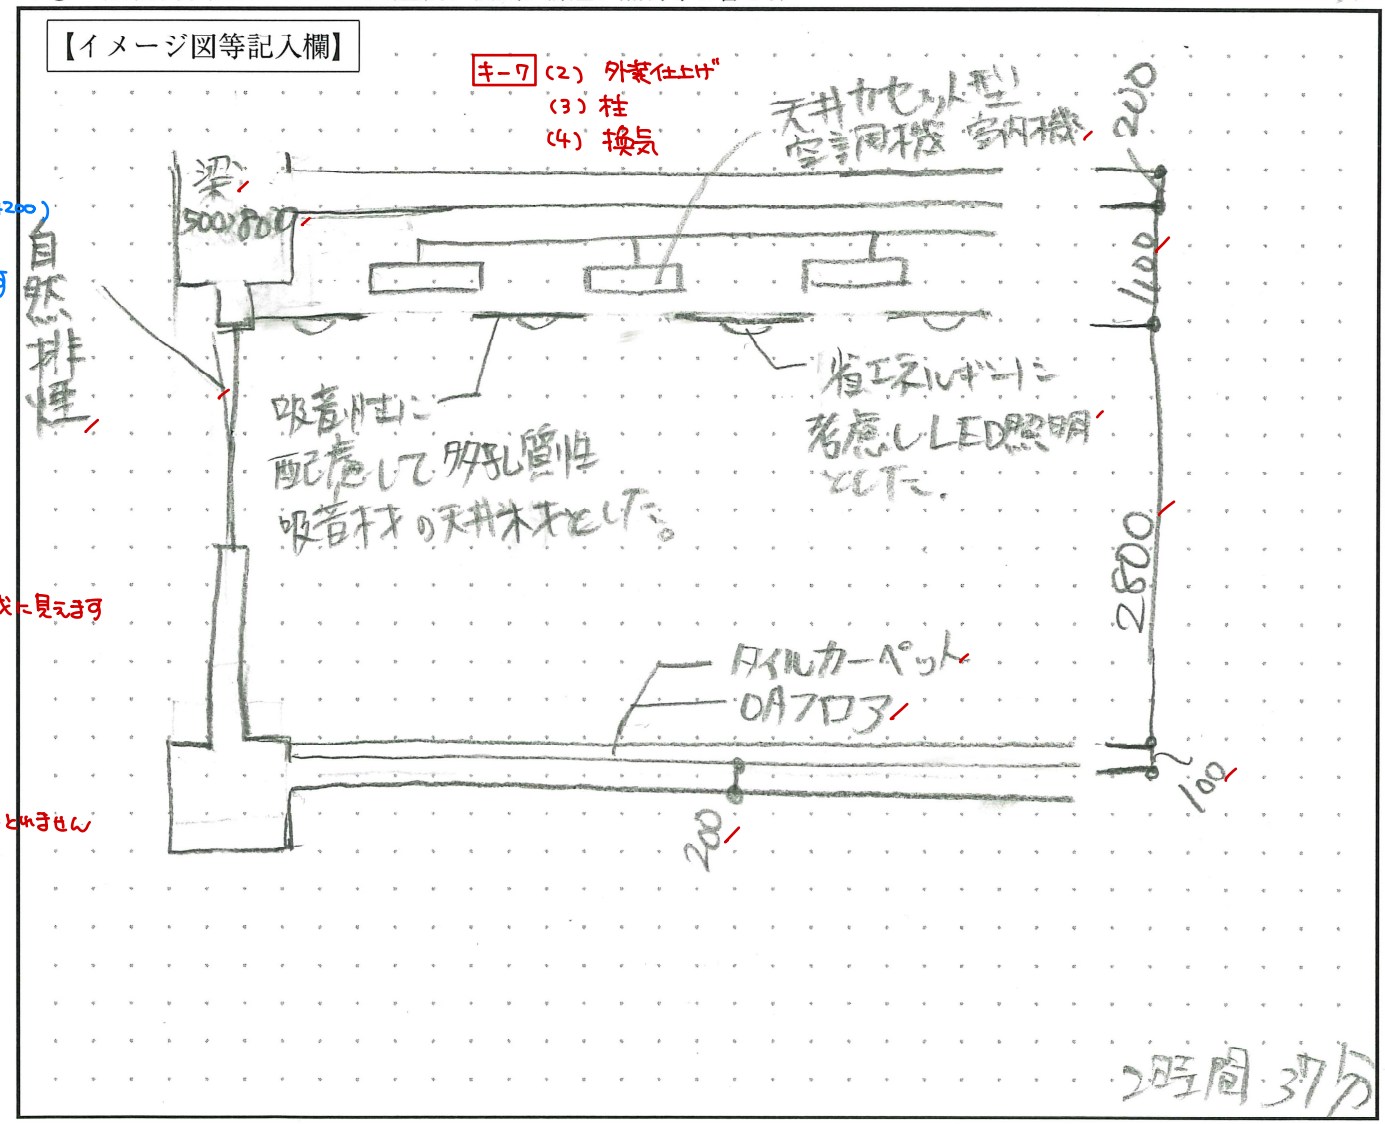 【イメージ図等記入欄】
キー7 (2) 外装仕上げ
(3) 柱
(4) 換気
天井カセット型
空調機 室内機
200
梁
500×800
200)
自然排煙
400
吸音性に
配慮して多孔質性
吸音材の天井木材とした。
省エネルギーに
考慮しLED照明
とした.
2800
に見えます
タイルカーペット
OAフロア
100
とれません
200
2時間37分